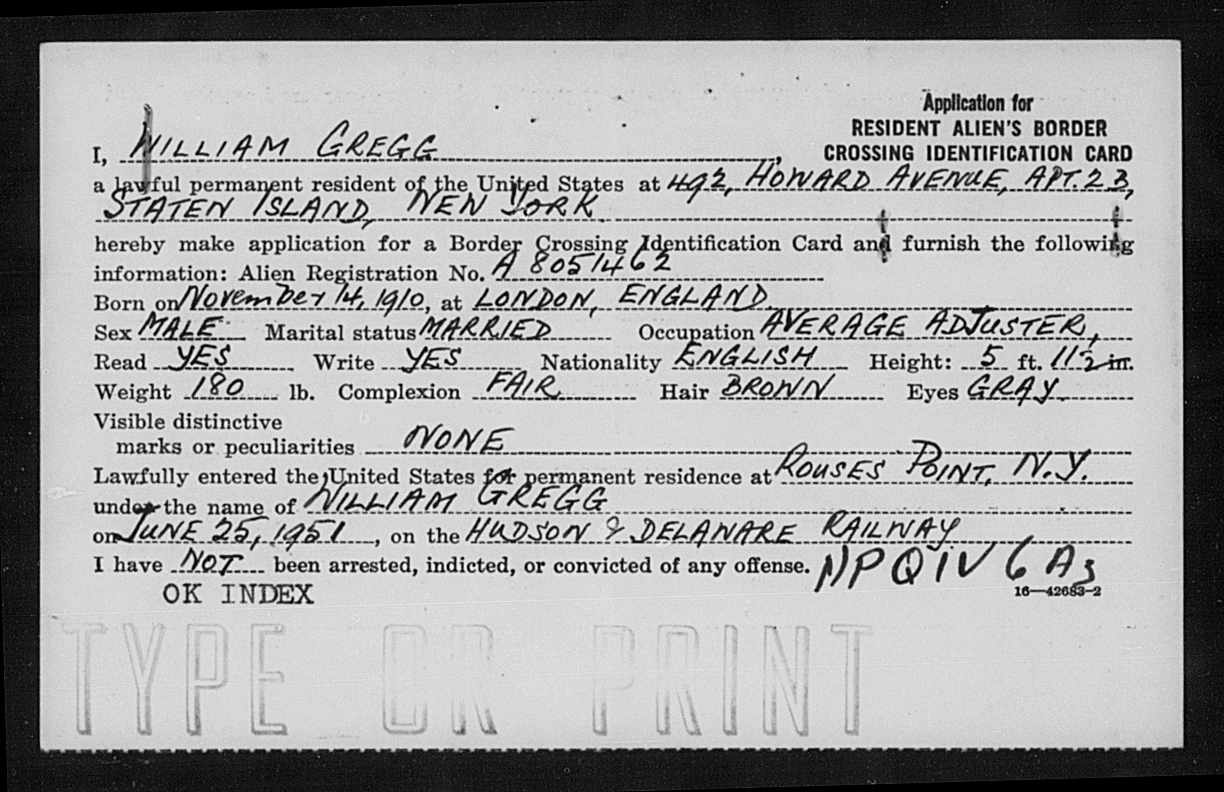 Application for
RESIDENT ALIEN'S BORDER
CROSSING IDENTIFICATION CARD
I, WILLIAM GREGG,
a lawful permanent resident of the United States at 492, HOWARD AVENUE, APT. 2B,
STATEN ISLAND, NEW YORK
hereby make application for a Border Crossing Identification Card and furnish the following
information: Alien Registration No. A 8051462
Born on November 14, 1910, at LONDON, ENGLAND
Sex MALE Marital status MARRIED Occupation AVERAGE ADJUSTER,
Read YES Write YES Nationality ENGLISH Height: 5 ft. 11½ in.
Weight 180 lb. Complexion FAIR Hair BROWN Eyes GRAY
Visible distinctive
marks or peculiarities NONE
Lawfully entered the United States for permanent residence at ROUSES POINT, N.Y.
under the name of WILLIAM GREGG
on JUNE 25, 1951, on the HUDSON & DELAWARE RAILWAY
I have NOT been arrested, indicted, or convicted of any offense. NPQIV 6 A3
OK INDEX 16—42683-2
TYPE OR PRINT